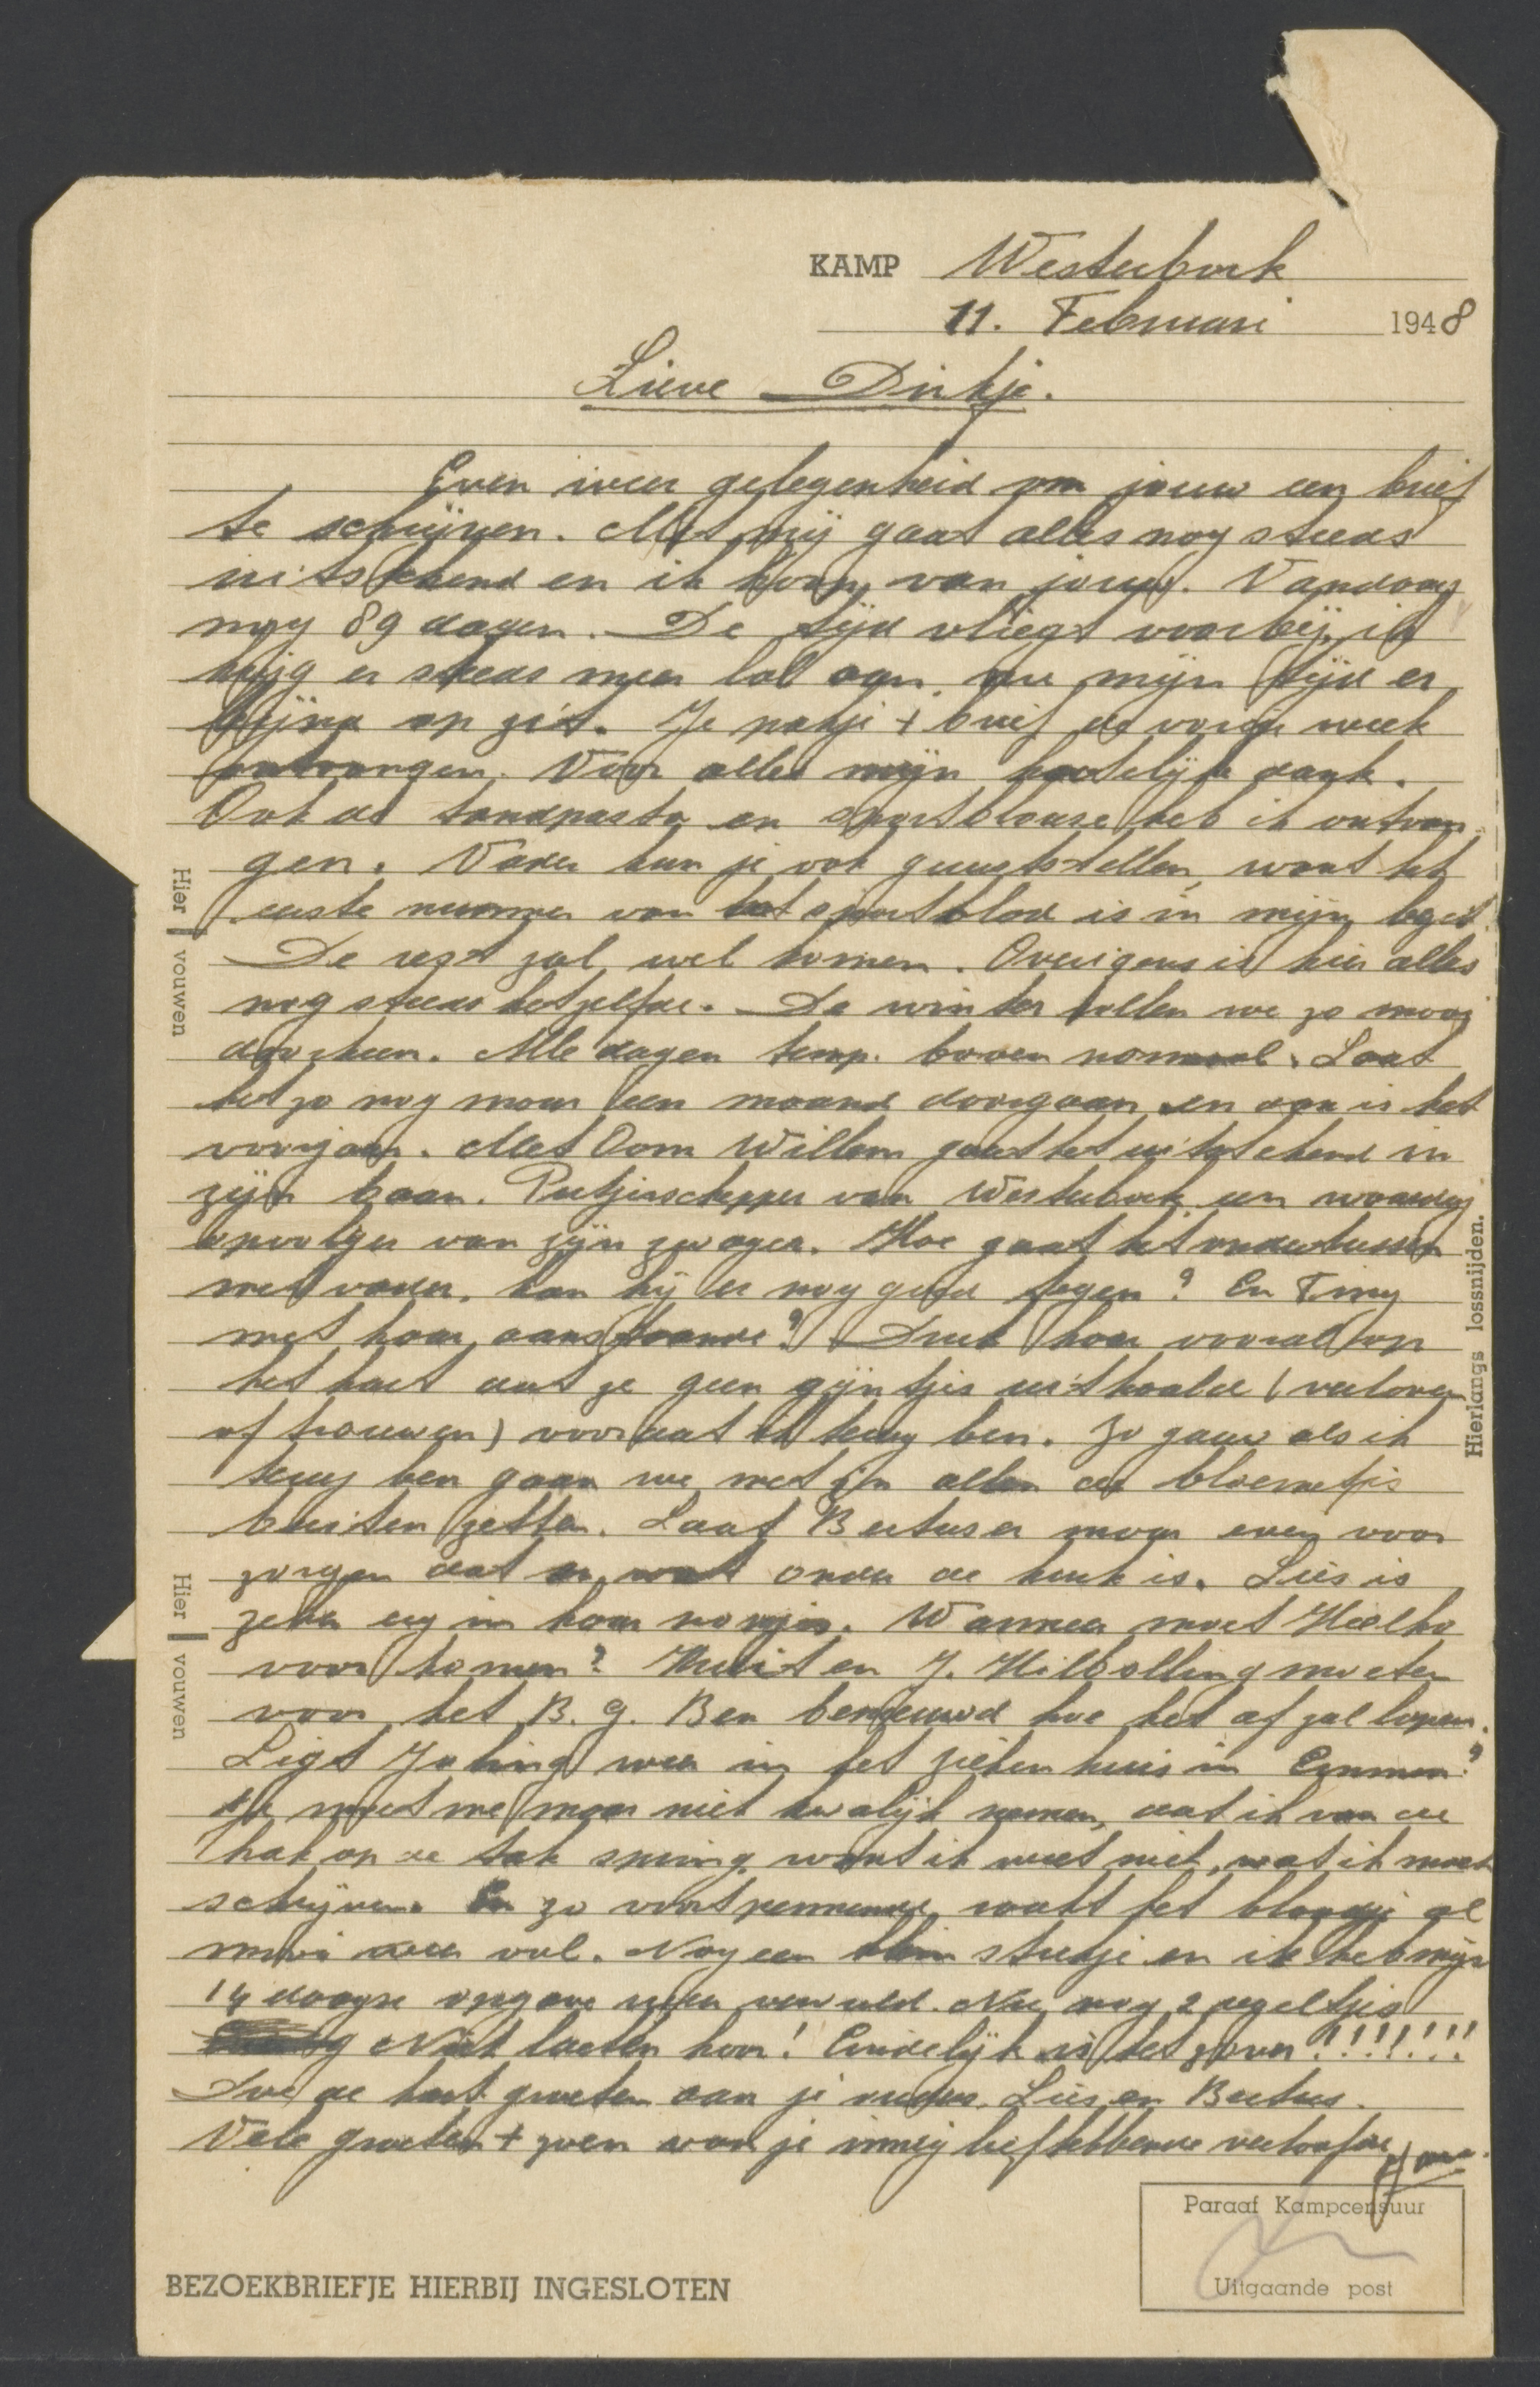 KAMP Westerbork
11. Februari 1948
Lieve Dirkje.
Even weer gelegenheid om jouw een brief
te schrijven. Met mij gaat alles nog steeds
uitstekend en ik hoop van jouw. Vandaag
nog 89 dagen. De tijd vliegt voorbij, ik
krijg er steeds meer lol aan, nu mijn tijd er
bijna op zit. Je pakje + brief de vorige week
ontvangen. Voor alles mijn hartelijk dank.
Ook de tandpasta en sportblouse heb ik ontvan-
gen. Vader kun je ook geruststellen, want het
eerste nummer van het sportblad is in mijn bezit.
De rest zal wel komen. Overigens is hier alles
nog steeds hetzelfde. De winter rollen we zo mooi
doorheen. Alle dagen temp. boven normaal. Laat
het zo nog maar een maand doorgaan en dan is het
voorjaar. Met Oom Willem gaat het uitstekend in
zijn baan. Putjesschepper van Westerbork een waardig
opvolger van zijn zwager. Hoe gaat het ondertussen
met vader, kan hij er nog goed tegen? En Tiny
met haar aanstaande? Druk haar vooral op
het hart dat ze geen gijntjes uithaalde (verloven
of trouwen) voordat ik terug ben. Zo gauw als ik
terug ben gaan we met zn allen de bloemetjes
buiten zetten. Laat Bertus er maar even voor
zorgen dat er wat onder de kurk is. Lies is
zeker erg in haar nopjes. Wanneer moet
voor komen? en J. Hilbolling moeten
voor het B. G. Ben benieuwd hoe het af zal lopen.
Ligt weer in het ziekenhuis in Emmen?
Je moet me maar niet kwalijk nemen, dat ik van de
hak op de tak spring, want ik weet niet, wat ik moet
schrijven. En zo voort pennende raakt het blaadje al
mooi weer vol. Nog een klein stukje en ik heb mijn
14 daagse opgave weer vervuld. Nu nog 2 regeltjes
Niet lachen hoor! Eindelijk is het zover!!!!!!!
Doe de hart. groeten aan je ouders, Lies en Bertus.
Vele groeten + zoen van je innig liefhebbende verloofde
Paraaf Kampcensuur
Uitgaande post
BEZOEKBRIEFJE HIERBIJ INGESLOTEN
Hier vouwen
Hier vouwen
Hierlangs lossnijden.